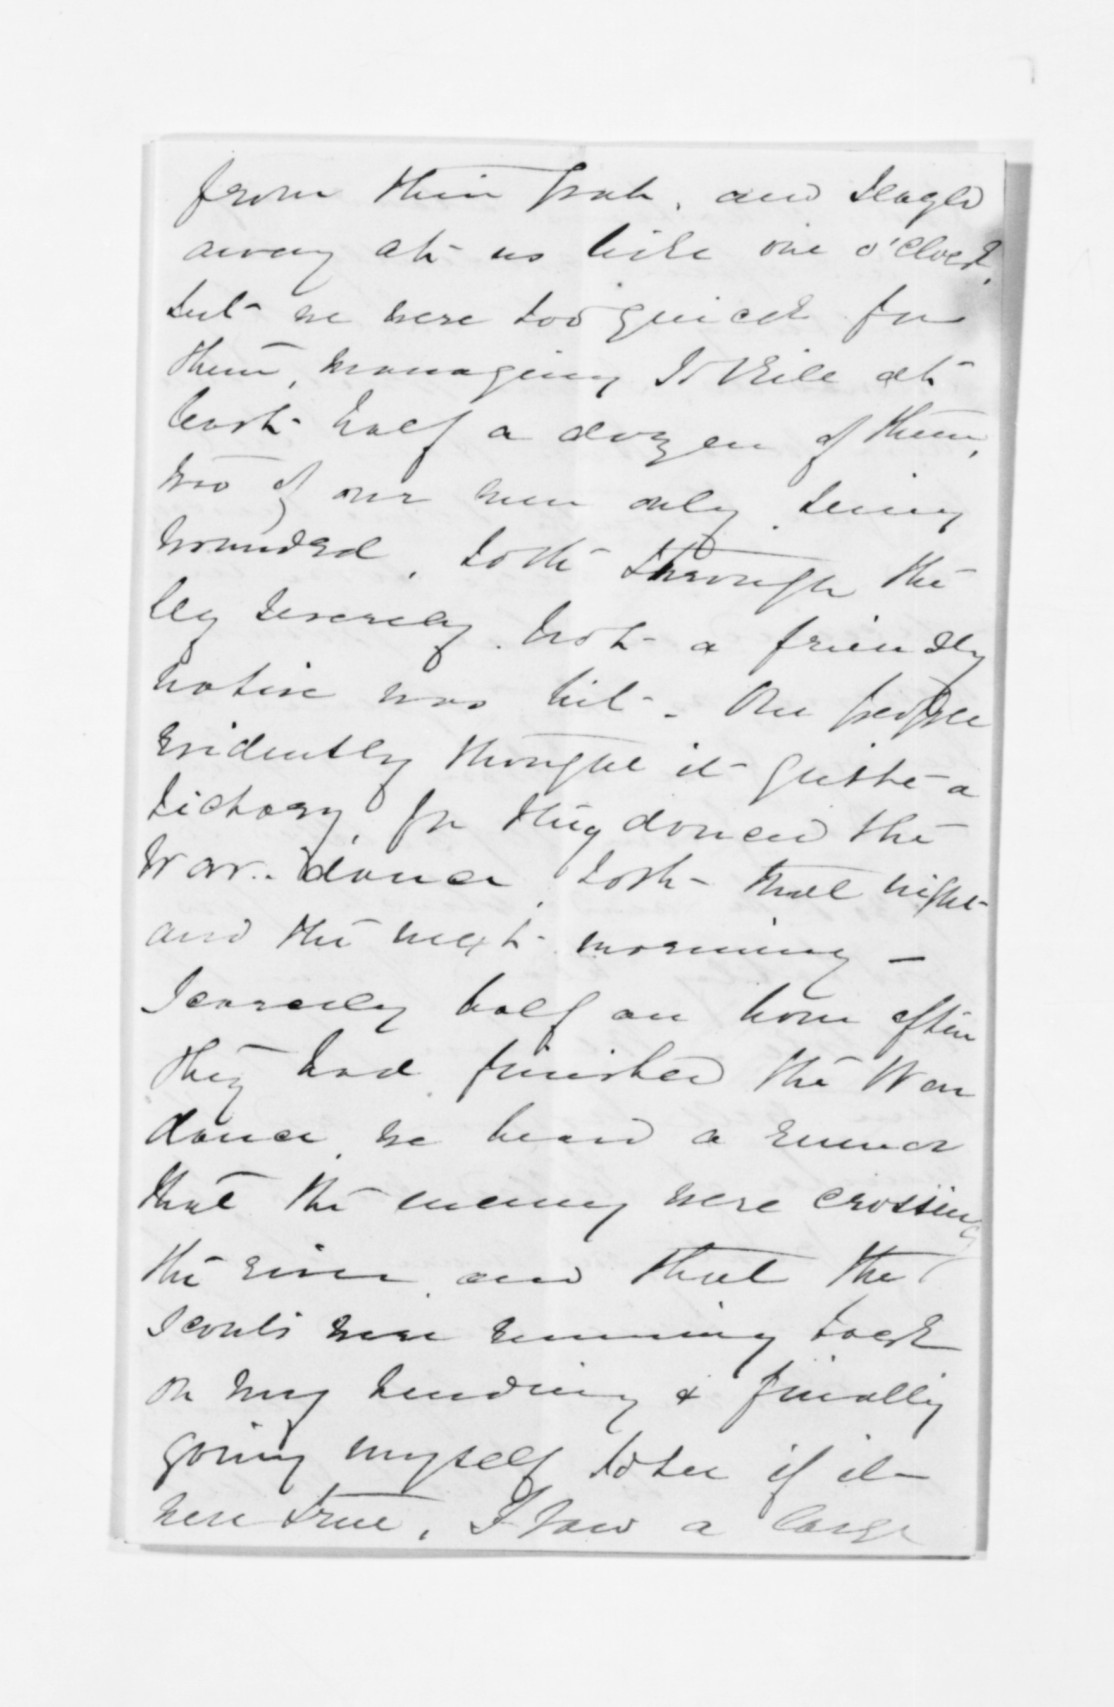 from their pah, and
away at us like one o'clock,
but we were too quick for
them, managing to kill at
least half a dozen of them,
two of our men only being
wounded, both through the
leg severely. Not a friendly
native was hit. Our people
evidently thought it quite a
victory, for they danced the
War-dance, both that night
and the next morning —
Scarcely half an hour after
they had finished the War
dance, we heard a rumor
that the enemy were crossing
the river and that the
scouts were running back
on my sending & finally
going myself to see if it
were true, I saw a large